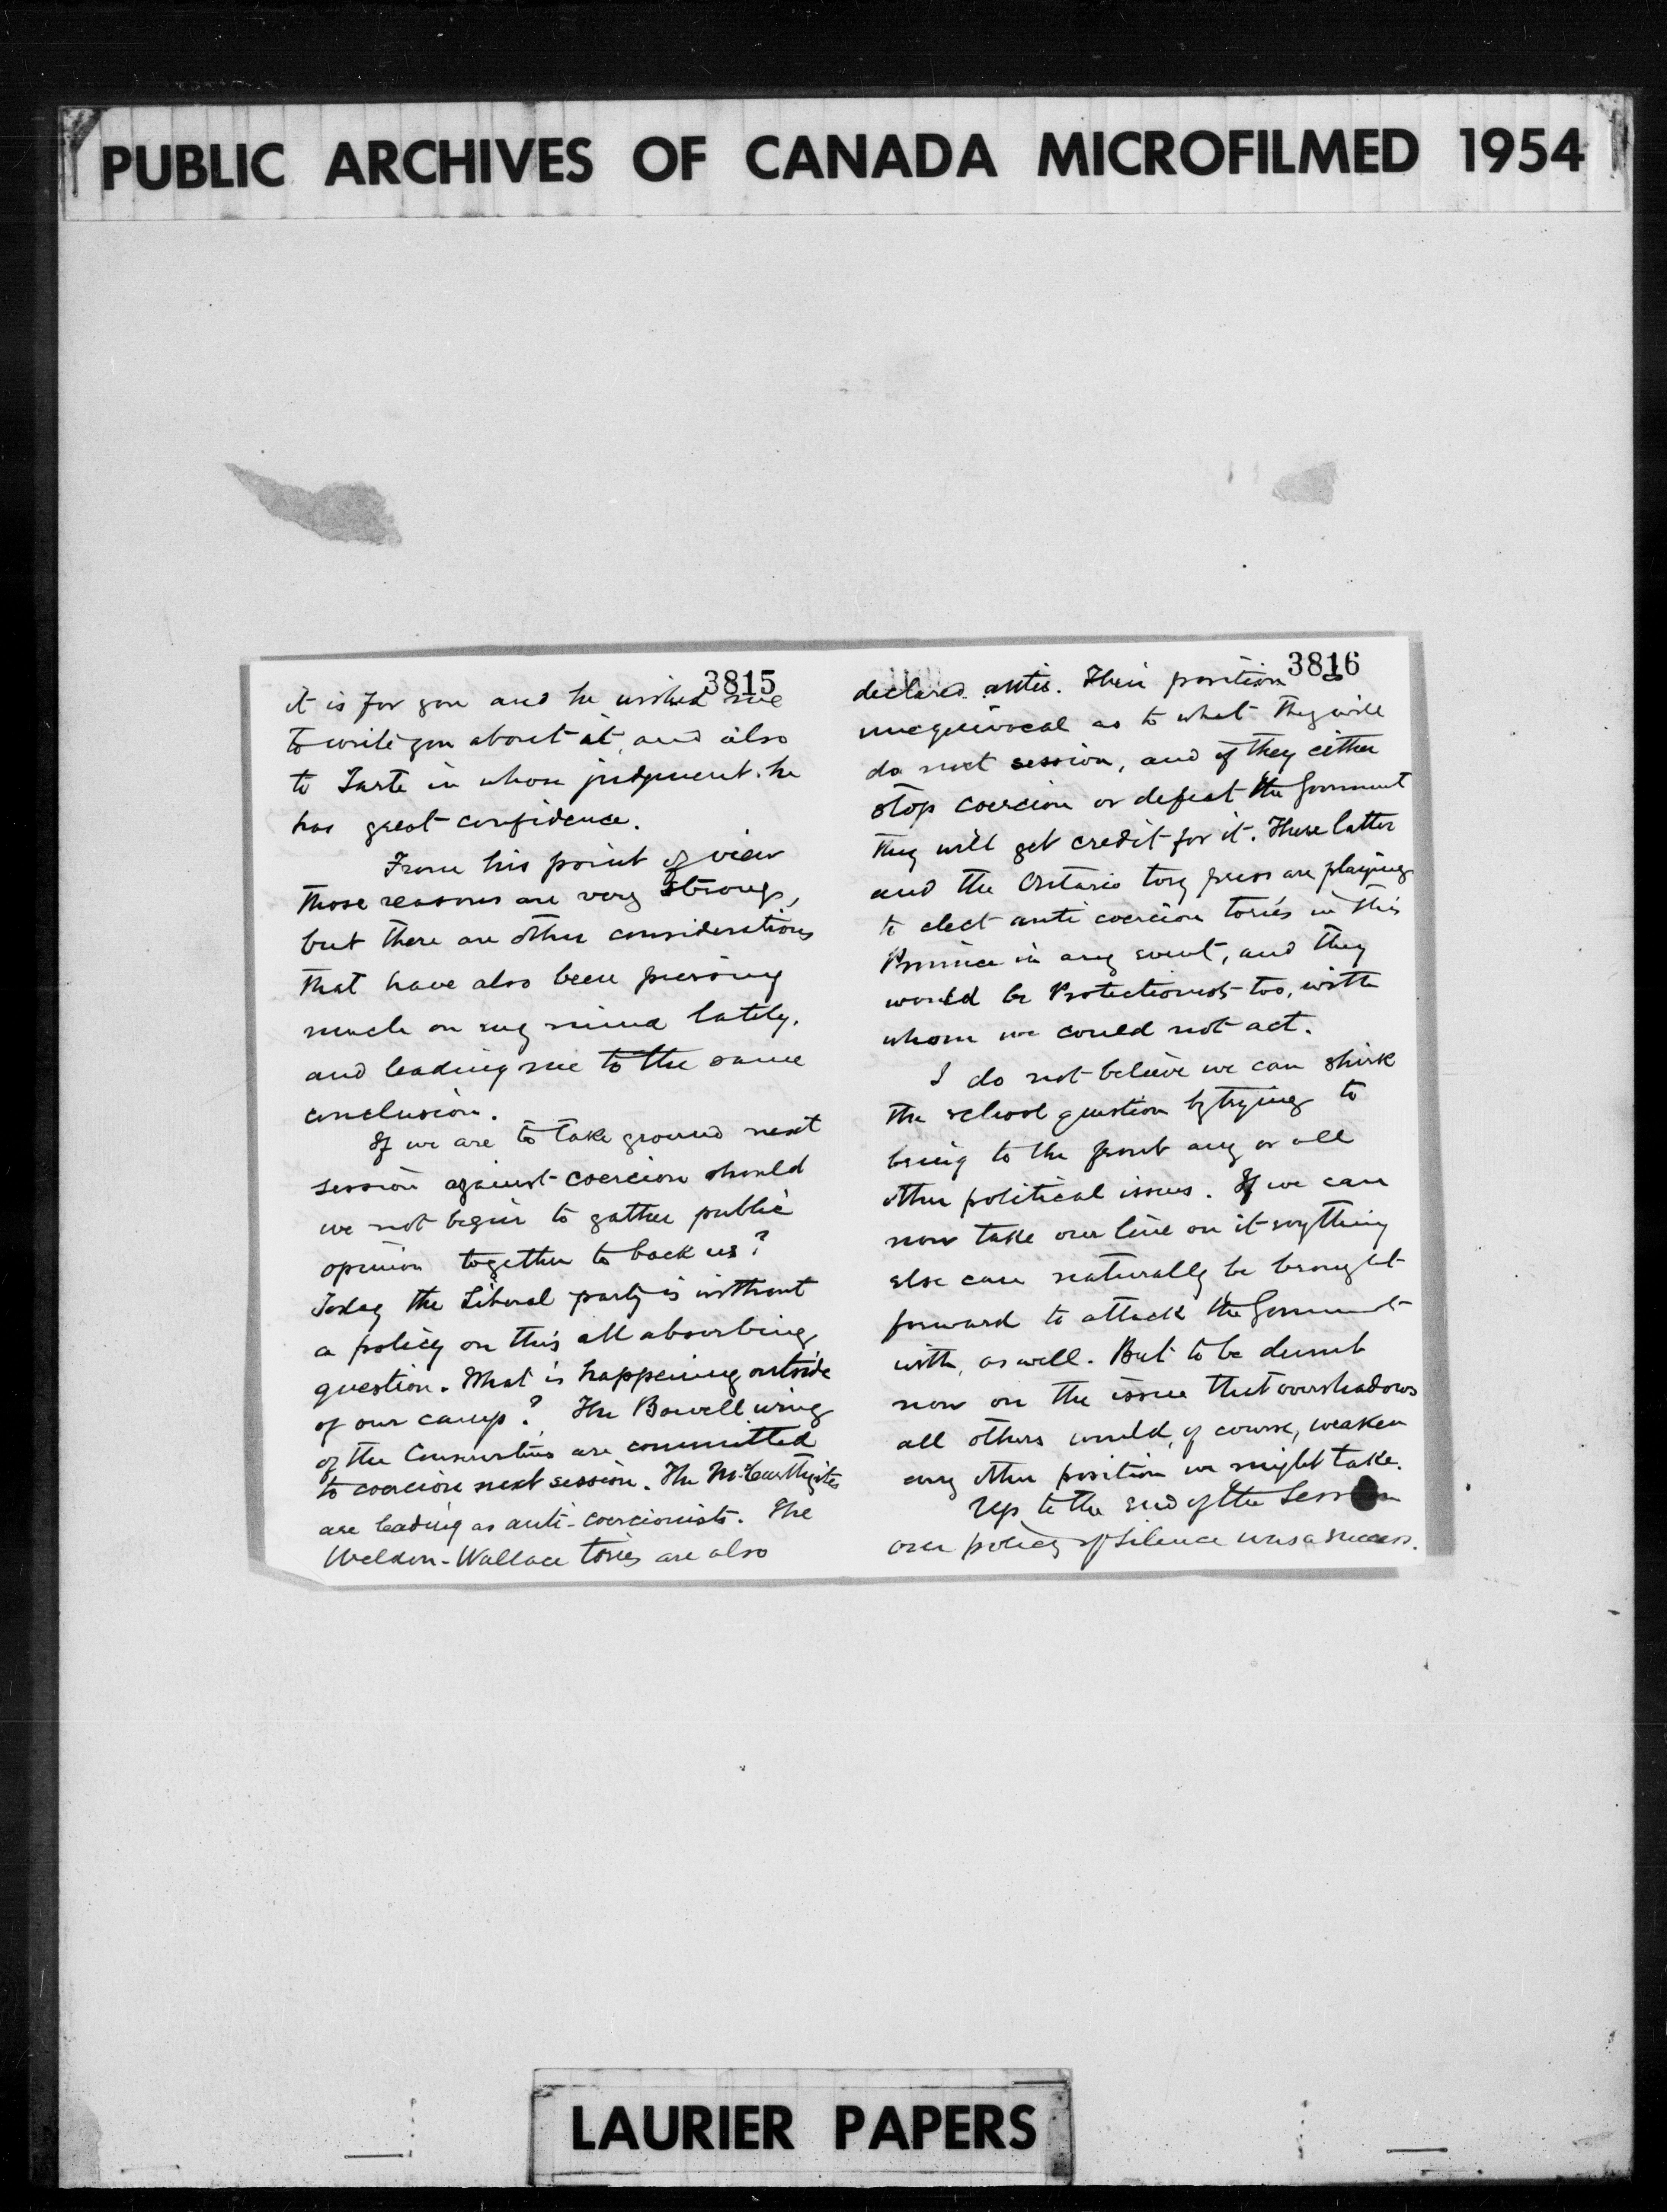 PUBLIC ARCHIVES OF CANADA MICROFILMED 1954
3815
it is for you and he wished me
to write you about it, and also
to Tarte in whose judgment he
has great confidence.
From his point of view
those reasons are very strong,
but there are other considerations
that have also been pressing
much on my mind lately,
and leading me to the same
conclusion.
If we are to take ground next
session against coercion should
we not begin to gather public
opinion together to back us?
Today the Liberal party is without
a policy on this all absorbing
question. What is happening outside
of our camp? The Bowell wing
of the Conservatives are committed
to coercion next session. The McCarthyites
are leading as anti-coercionists. The
Weldon-Wallace tories are also
3816
declared antis. Their position is
unequivocal as to what they will
do next session, and if they either
stop coercion or defeat the Government
they will get credit for it. These latter
and the Ontario tory press are playing
to elect anti coercion tories in this
Province in any event, and they
would be Protectionists too, with
whom we could not act.
I do not believe we can shirk
the school question by trying to
bring to the front any or all
other political issues. If we can
now take our line on it anything
else can naturally be brought
forward to attack the Government
with, as well. But to be dumb
now on the issue that overshadows
all others would, of course, weaken
any other position we might take.
Up to the end of the Session
our policy of silence was a success.
LAURIER PAPERS